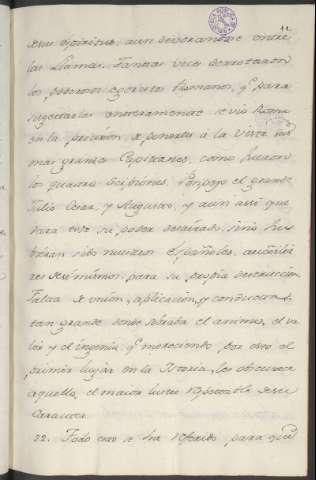 12
espiritus, aun devorandose entre
las llamas. Tantas veces derrotaron
los poderosos exercitos Romanos, qe. para
sugetarlas enteramente se vió Roma
en la precision de ponerles á la vista sus
mas grandes Capitanes, como fueron
los quatro Scipiones, Pompeyo el grande
Julio Cesar, y Augusto, y aun assi que
dara todo su poder desairado, sino hu
bieran sido nuestros Españoles,
de si mismos, para su propia destruccion
Falta de union, aplicacion, y conducta,
tan grande donde sobraba el animo, el va
lor y el ingenio, qe. mereciendo por esto el
primer lugar en la Istoria, les obscurece
aquello, el maior lustre de su
Caracter.
22. Todo esto se ha referido para que